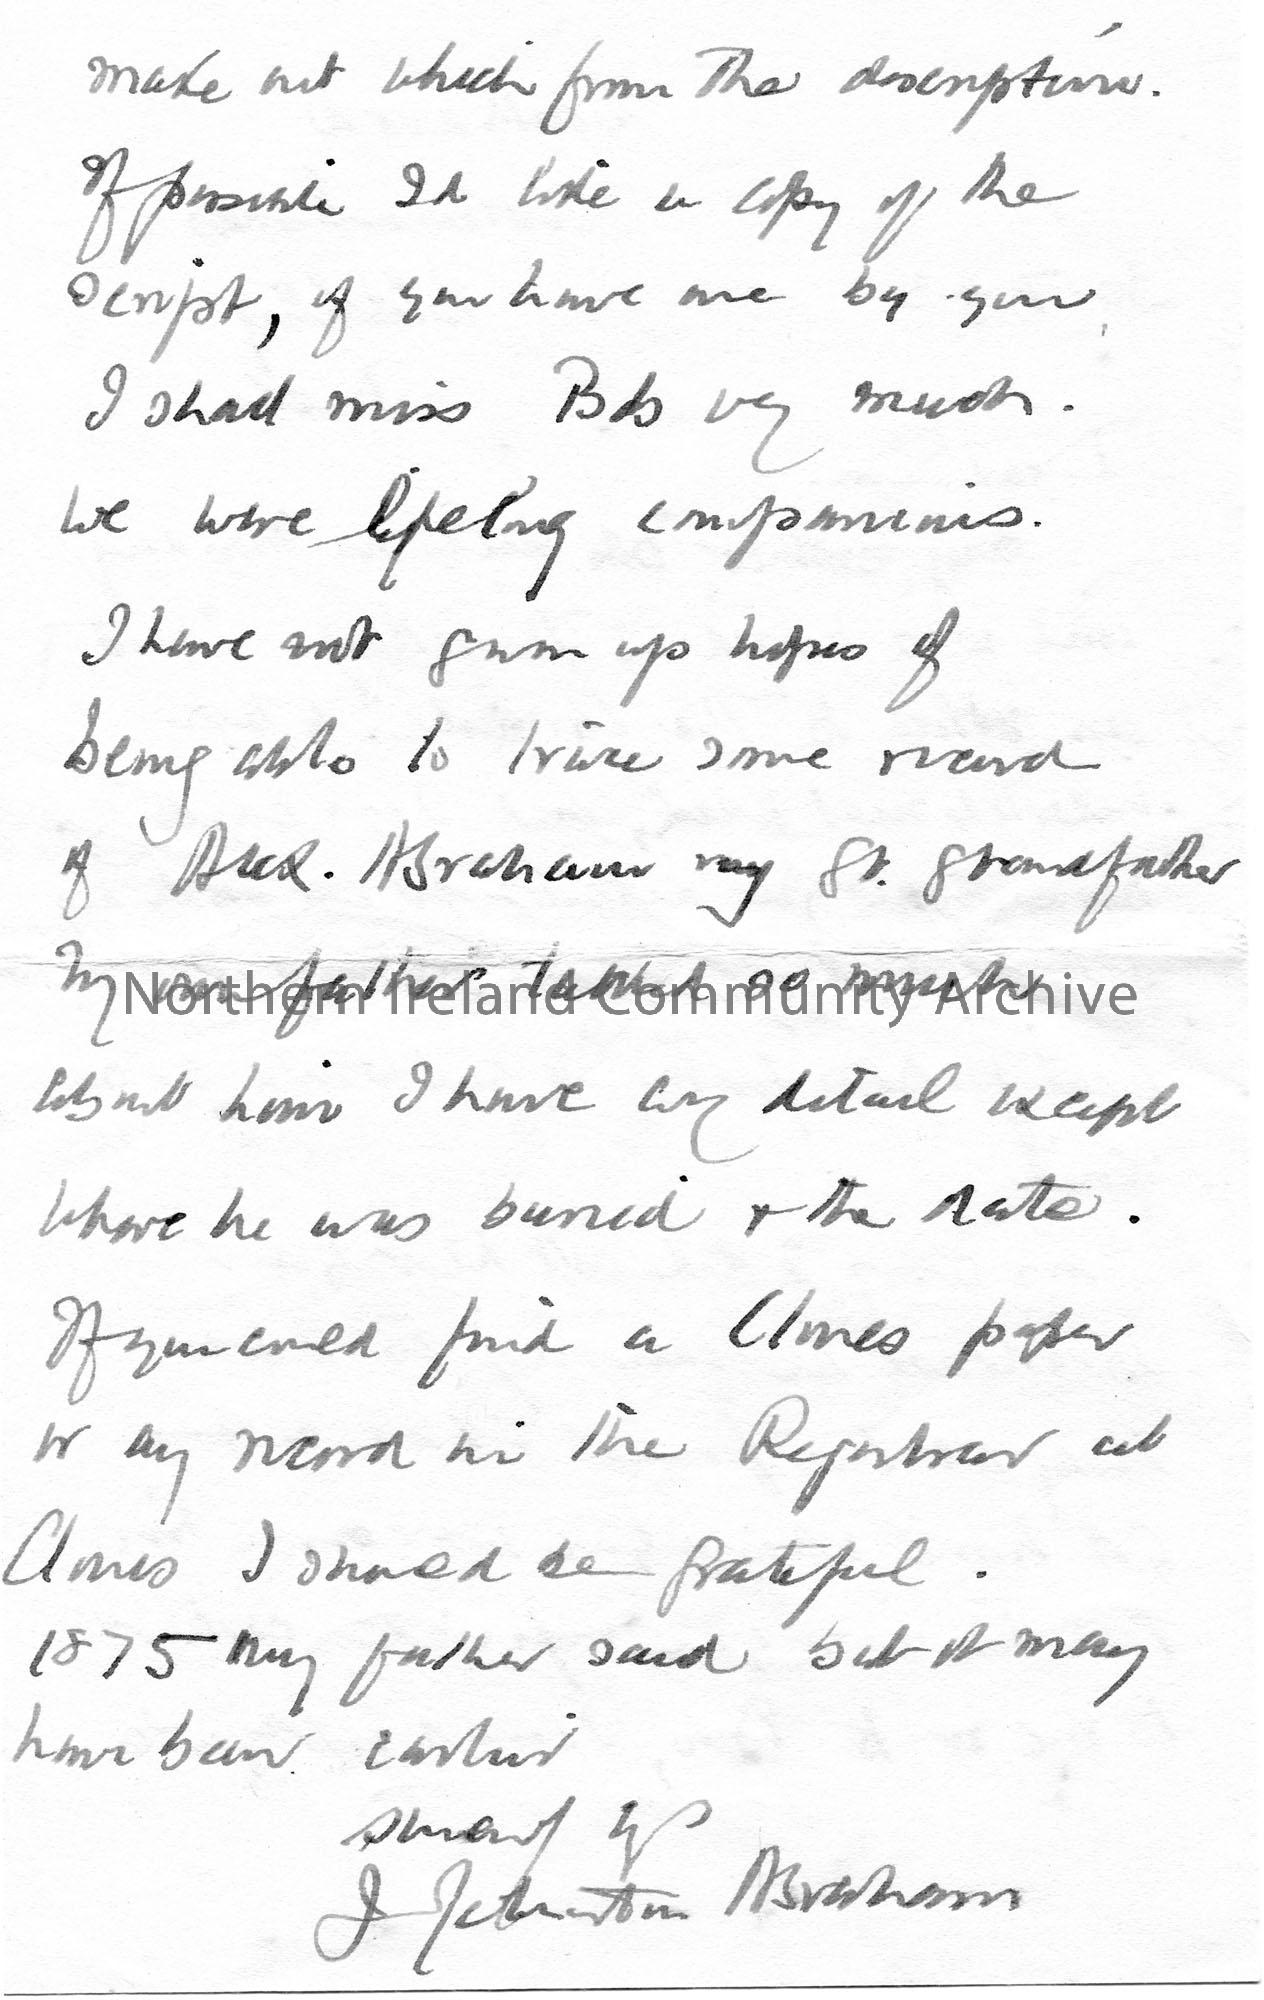 make out which from the description.
If possible I'd like a copy of the
script, if you have one by you.
I shall miss Bob very much.
We were lifelong companions.
I have not given up hopes of
being able to trace some record
of Alex. Abraham my gt. grandfather
My own father talked so much
Northern Ireland Community Archive
about him I have any detail except
where he was buried & the date.
If you could find a Clones paper
or any record in the Registrar at
Clones I should be grateful.
1875 my father said but it may
have been earlier
sincerely yrs
J Johnston Abraham